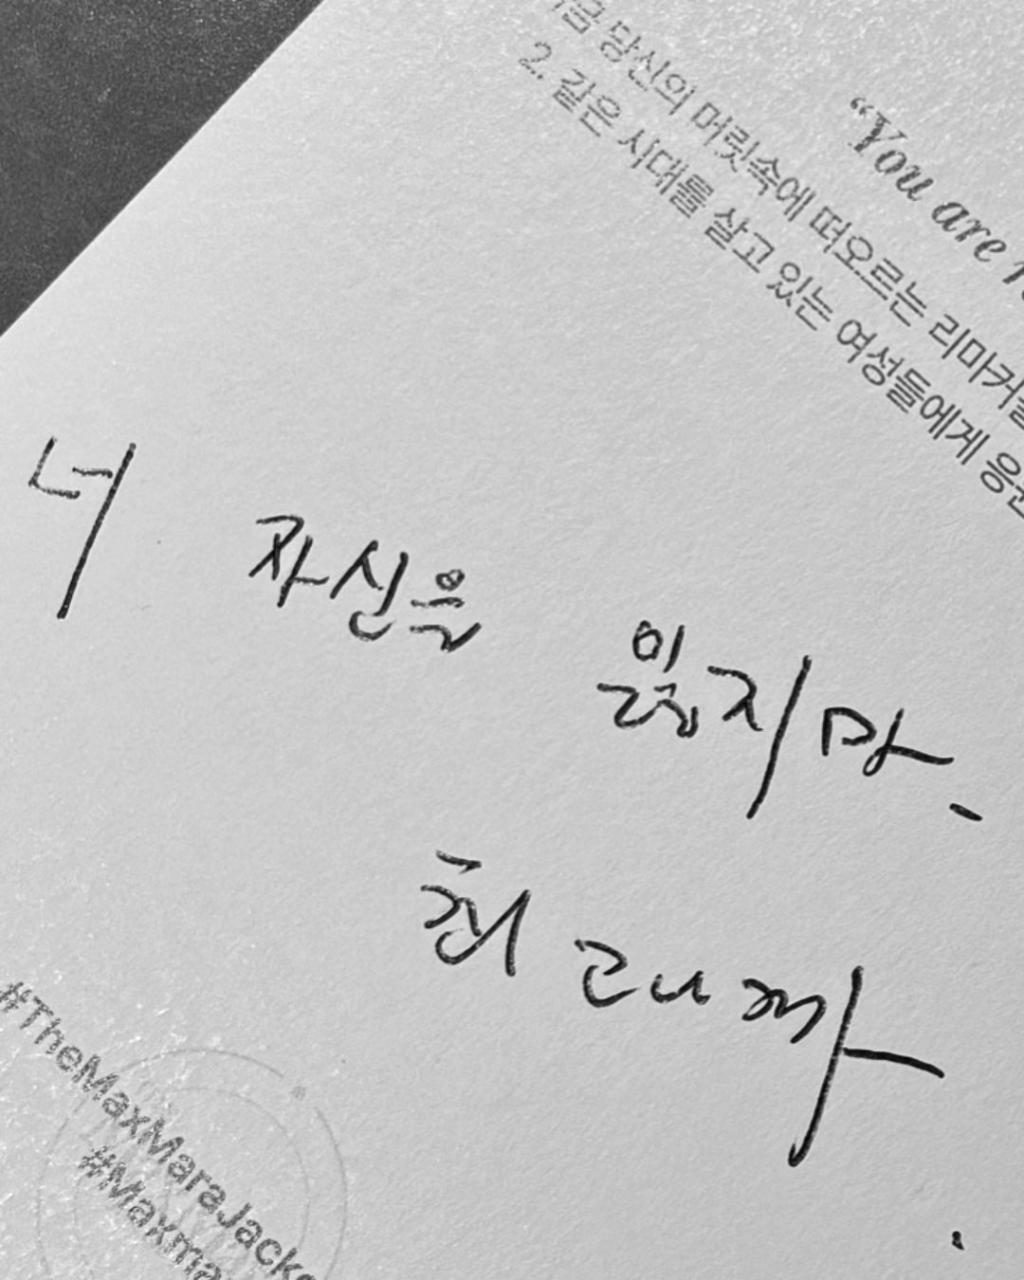 "You are
당신의 머릿속에 떠오르는
2. 같은 시대를 살고 있는 여성들에게
너 자신을 잃지마.
최고니까.
#TheMaxMaraJacke
#Maxma